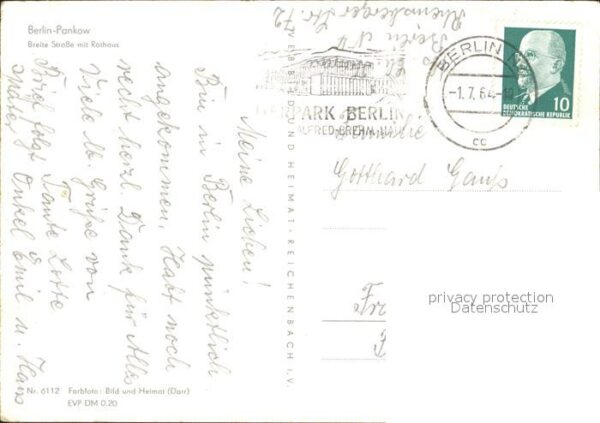 Berlin-Pankow
Breite Straße mit Rathaus
Meine Lieben!
Bin in Berlin pünktlich
angekommen. Habt noch
recht herzl. Dank für Alles
Viele lb Grüße von
Tante Lotte
Brief folgt
später
Onkel Emil u. Hans
Nr. 6112 Farbfoto: Bild und Heimat (Darr)
EVP DM 0.20
VEB BILD UND HEIMAT · REICHENBACH i. V.
Berlin N 4
Rheinsberger Str. 72
TIERPARK BERLIN
ALFRED-BREHM
BERLIN N4
-1.7.64-
cc
DEUTSCHE
DEMOKRATISCHE REPUBLIK
10
Familie
Gotthard Gauß
privacy protection
Datenschutz